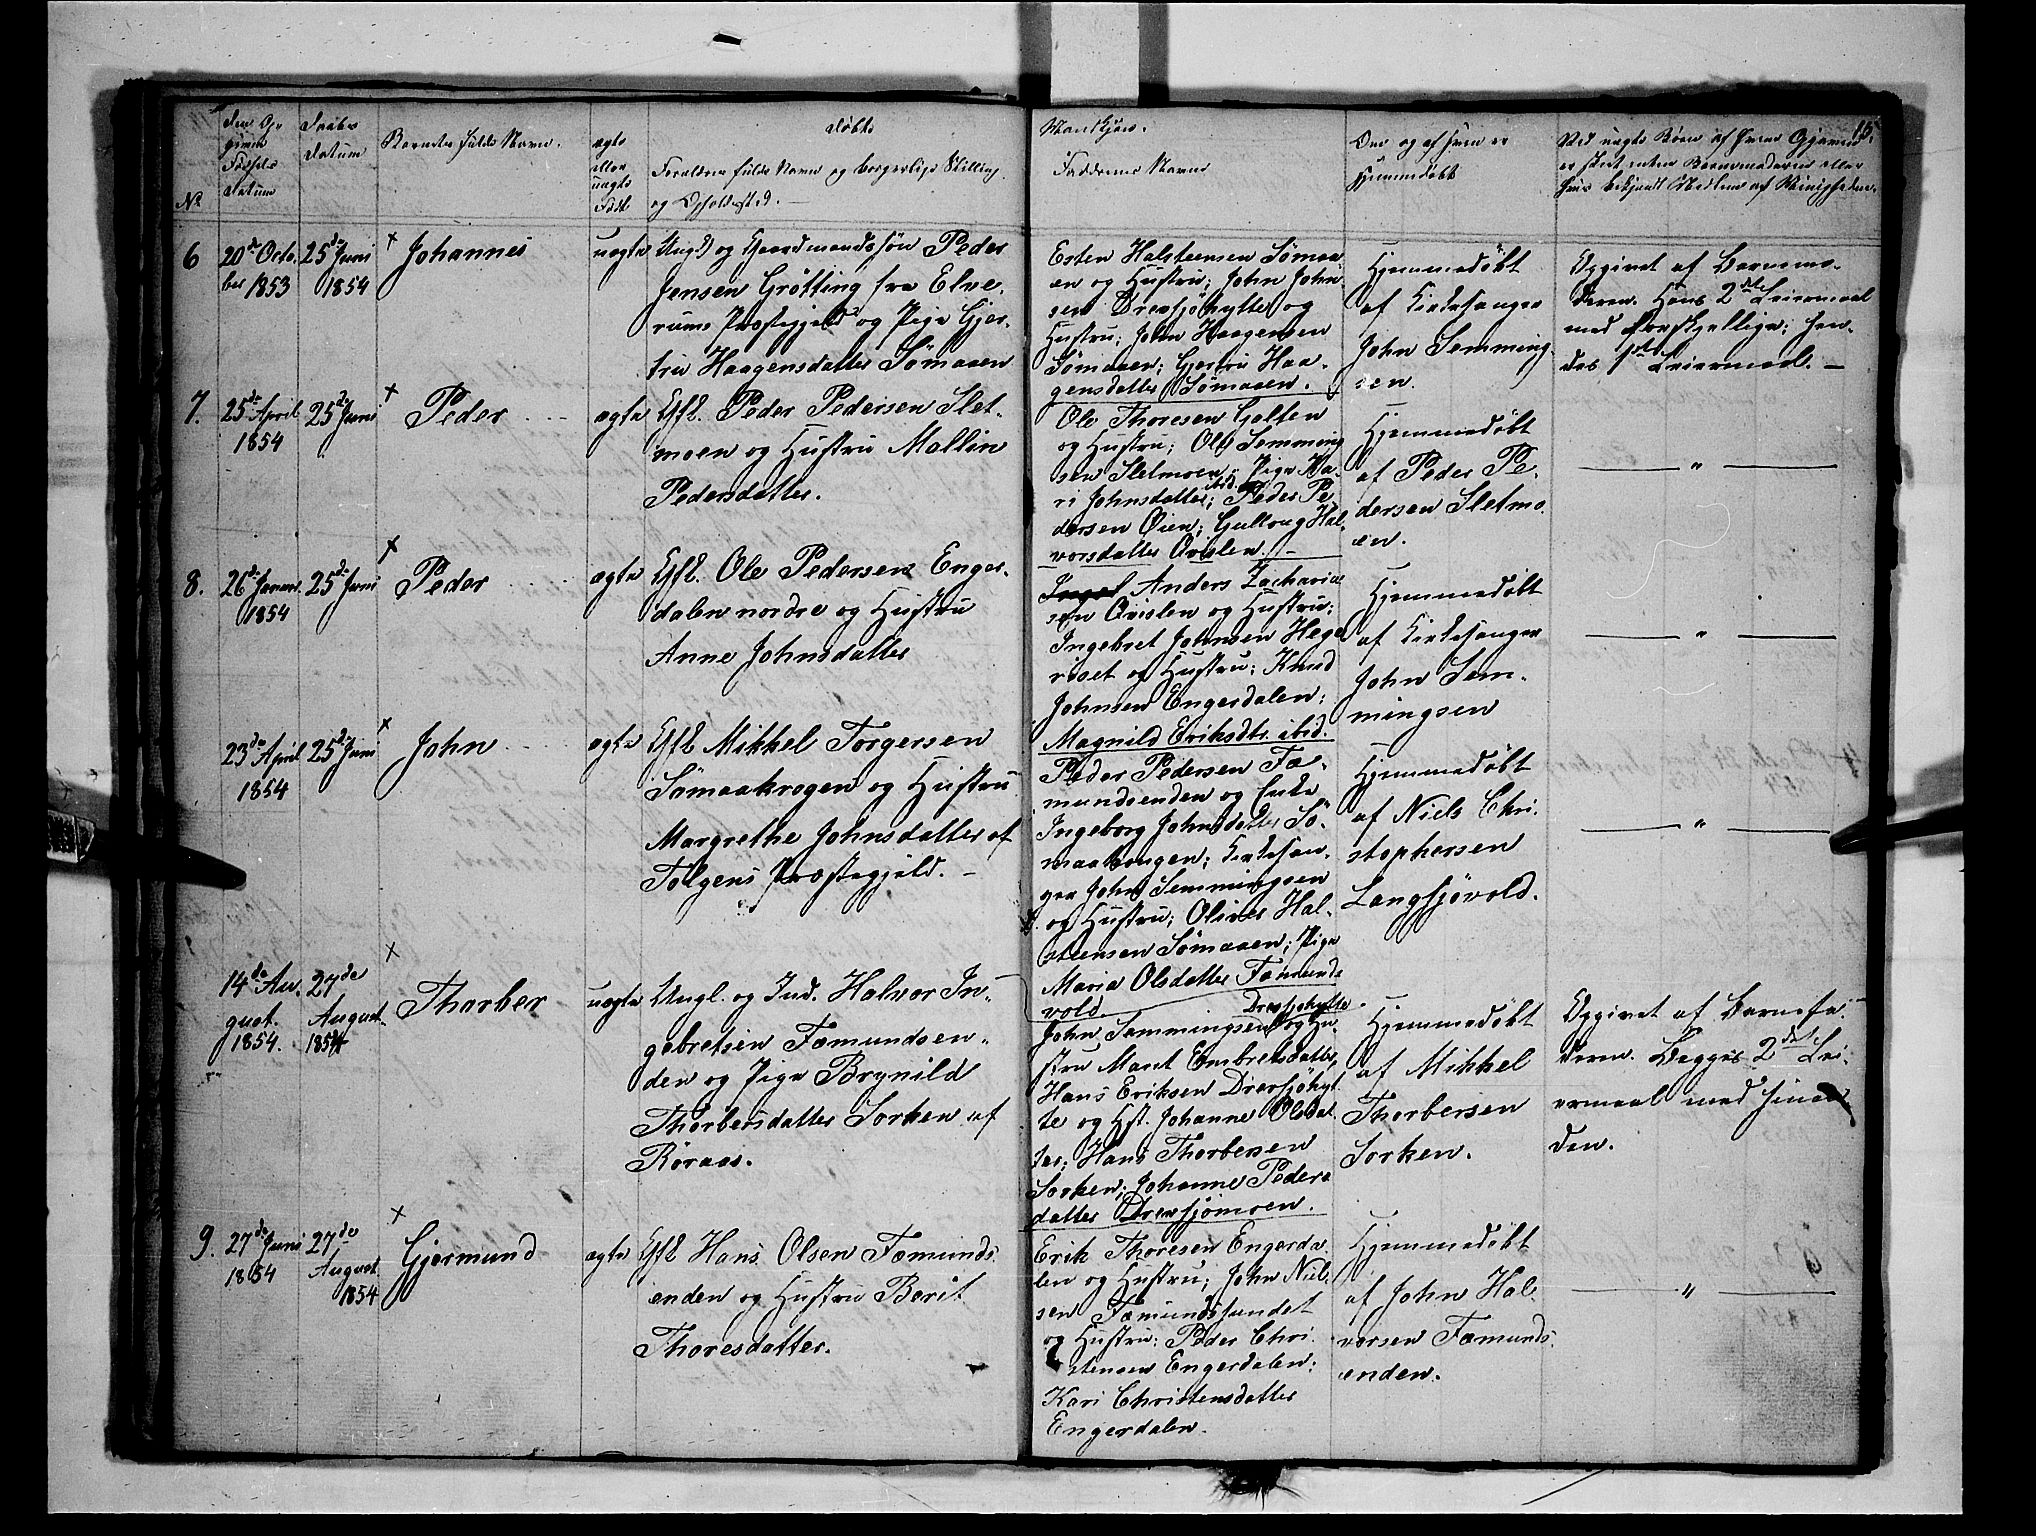 15.
Døbte
Mandkjøn.
No
Den Op-
givne
Fødsels
datum
Daabs
datum
Barnets fulde Navn.
ægte
eller
uægte
Født
Forældres fulde Navn og borgerlige Stilling
og Opholdssted. —
Faddernes Navne
Om og af hvem er
hjemmedøbt
Ved uægte Børn af hvem Opgivende
er skeet enten Barnemoderen eller
hvis bekjendt Medlem af Menigheden.
6
20de Octo.
ber 1853
25de Juni
1854
Johannes
uægte
Ungk. og Gaardmandssøn Peder
Jensen Grötting fra Elve.
rums Præstegjeld og Pige Gjer-
tru Haagensdatter Sömaaen
Esten Halsteensen Sömaa
en og Hustru; John John
sen Drevsjöhytte og
Hustru; John Haagensen
Sömaaen; Gjertru Haa-
gensdatter Sömaaen.
Hjemmedöbt
af Kirkesanger
John Semming
sen.
Opgivet af Barnemo-
deren. Hans 2det Leiermaal
med forskjellige; hen-
des 1ste Leiermaal. —
7.
25de April
1854
25de Juni
Peder
ægte
Gfl. Peder Pedersen Slet-
moen og Hustru Mallin
Pedersdatter.
Ole Thoresen Galten
og Hustru; Ole Semming
sen Sletmoen; Pige Ka-
ri Johnsdatter ibid.; Peder Pe
dersen Øien; Gullaug Hal-
vorsdatter Qvislen. —
Hjemmedöbt
af Peder Pe-
dersen Sletmo.
en.
— " —
8.
26de Januar
1854
25de Juni
Peder
ægte
Gfl. Ole Pedersen Enger-
dalen nordre og Hustru
Anne Johnsdatter
Anders Zacharia
sen Qvislen og Hustru;
Ingebret Johnsen Hege
riset og Hustru; Knud
Johnsen Engerdalen;
Magnild Eriksdtr. ibid.
Hjemmedöbt
af Kirkesanger
John Sem-
mingsen
— " —
23de April
1854
25de Juni
John
ægte
Gfl. Mikkel Torgersen
Sömaakrogen og Hustru
Margrethe Johnsdatter af
Tolgens Præstegjeld. —
Peder Pedersen Fæ-
mundsenden og Enke
Ingeborg Johnsdatter Sö-
maakrogen; Kirkesan-
ger John Semmingsen
og Hustru; Oliver Hal-
steensen Sömaaen; Pige
Maria Olsdatter Fæmunds
vold
Hjemmedöbt
af Niels Chri-
stophersen
Langsjövold.
— " —
14de Au.
gust.
1854.
27de
August
1854
Thorber
uægte
Ungk. og Ind. Halvor In-
gebretsen Fæmundsen-
den og Pige Brynild
Thorbersdatter Sorken af
Röraas.
John Semmingsen Drevsjöhytte og Hu-
stru Maret Embretsdatter,
Hans Eriksen Drevsjöhyt-
te og Hst. Johanne Olsdat
ter; Hans Thorbersen
Sorken; Johanne Peders
datter Drevsjömoen.
Hjemmedöbt
af Mikkel
Thorbersen
Sorken.
Opgivet af Barnefa-
deren. Begges 2det Lei-
ermaal med hinan
den.
9.
27de Juni
1854
27de
August
1854
Gjermund
ægte
Gfl Hans Olsen Fæmunds.
enden og Hustru Berit
Thoresdatter.
Erik Thoresen Engerda-
len og Hustru; John Niel-
sen Fæmundssundet
og Hustru; Peder Chri-
stensen Engerdalen;
Kari Christensdatter
Engerdalen.
Hjemmedöbt
af John Hal-
vorsen Fæmunds.
enden.
— " —